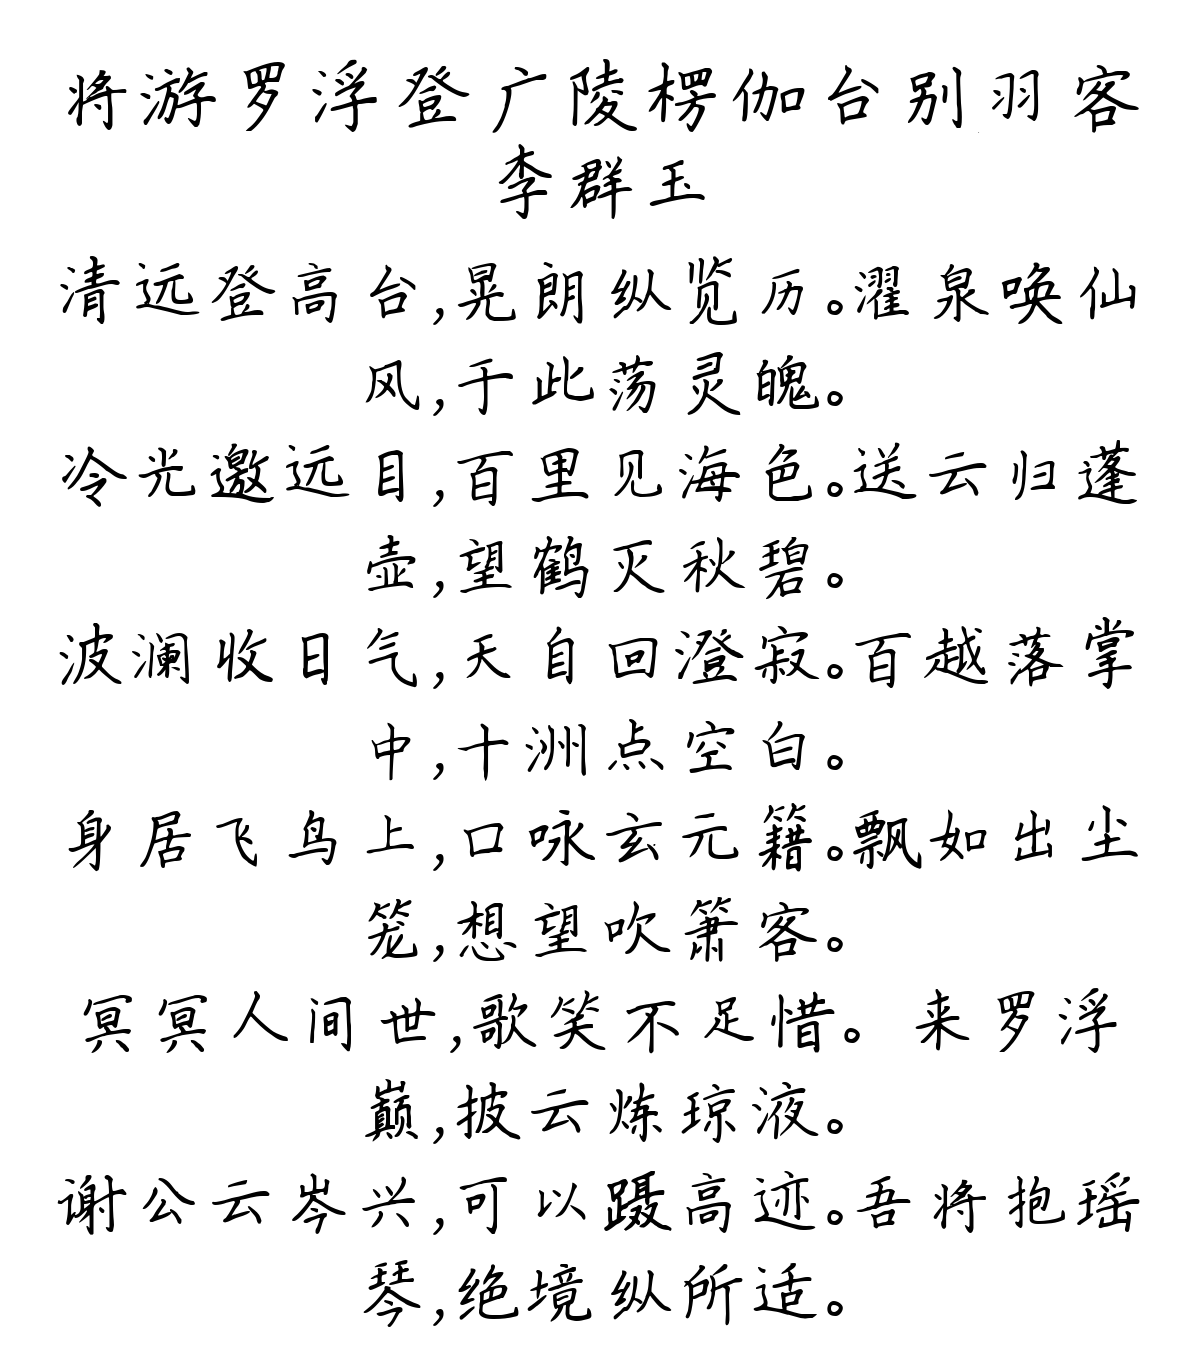 将游罗浮登广陵楞伽台别羽客
李群玉
清远登高台,晃朗纵览历。濯泉唤仙
风,于此荡灵魄。
冷光邀远目,百里见海色。送云归蓬
壶,望鹤灭秋碧。
波澜收日气,天自回澄寂。百越落掌
中,十洲点空白。
身居飞鸟上,口咏玄元籍。飘如出尘
笼,想望吹箫客。
冥冥人间世,歌笑不足惜。来罗浮
巅,披云炼琼液。
谢公云岑兴,可以蹑高迹。吾将抱瑶
琴,绝境纵所适。